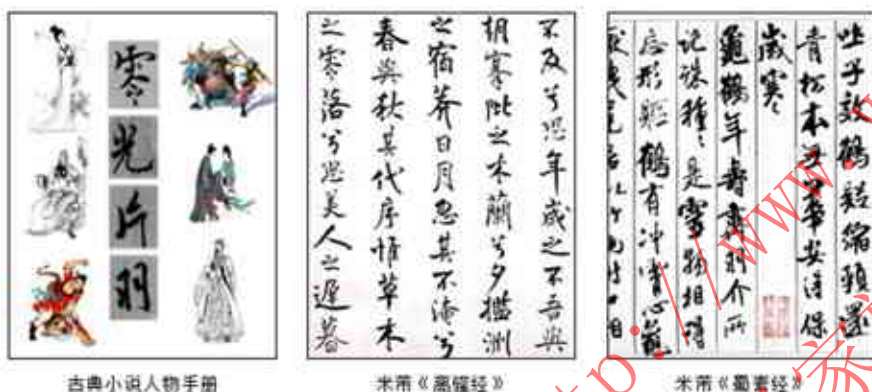 零光片羽
古典小说人物手册
不及兮恐年歲之不吾與
朝搴阰之木蘭兮夕攬洲
之宿莽日月忽其不淹兮
春與秋其代序惟草木
之零落兮恐美人之遲暮
米芾《离骚经》
吐子效鶴縮頸還
青松本無華安得保
歲寒
龜鶴年壽齊羽介所
託殊種種是靈物相得
忘形軀鶴有沖霄心龜
厭曳尾居以竹兩附口相
米芾《蜀素经》
http://www.
家